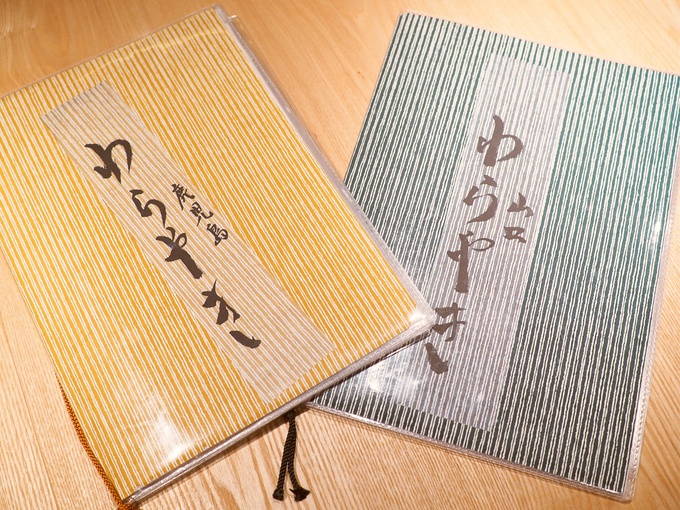 鹿児島
わらやき
山口
わらやき